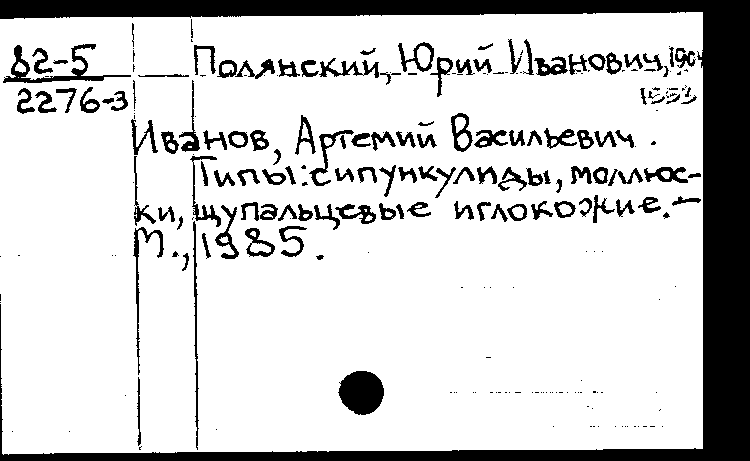 82-5
2276-3
Полянский, Юрий Иванович, 1904
Иванов, Артемий Васильевич.
Типы: сипункулиды, моллюс-
ки, щупальцевые иглокожие.-
М., 1985.